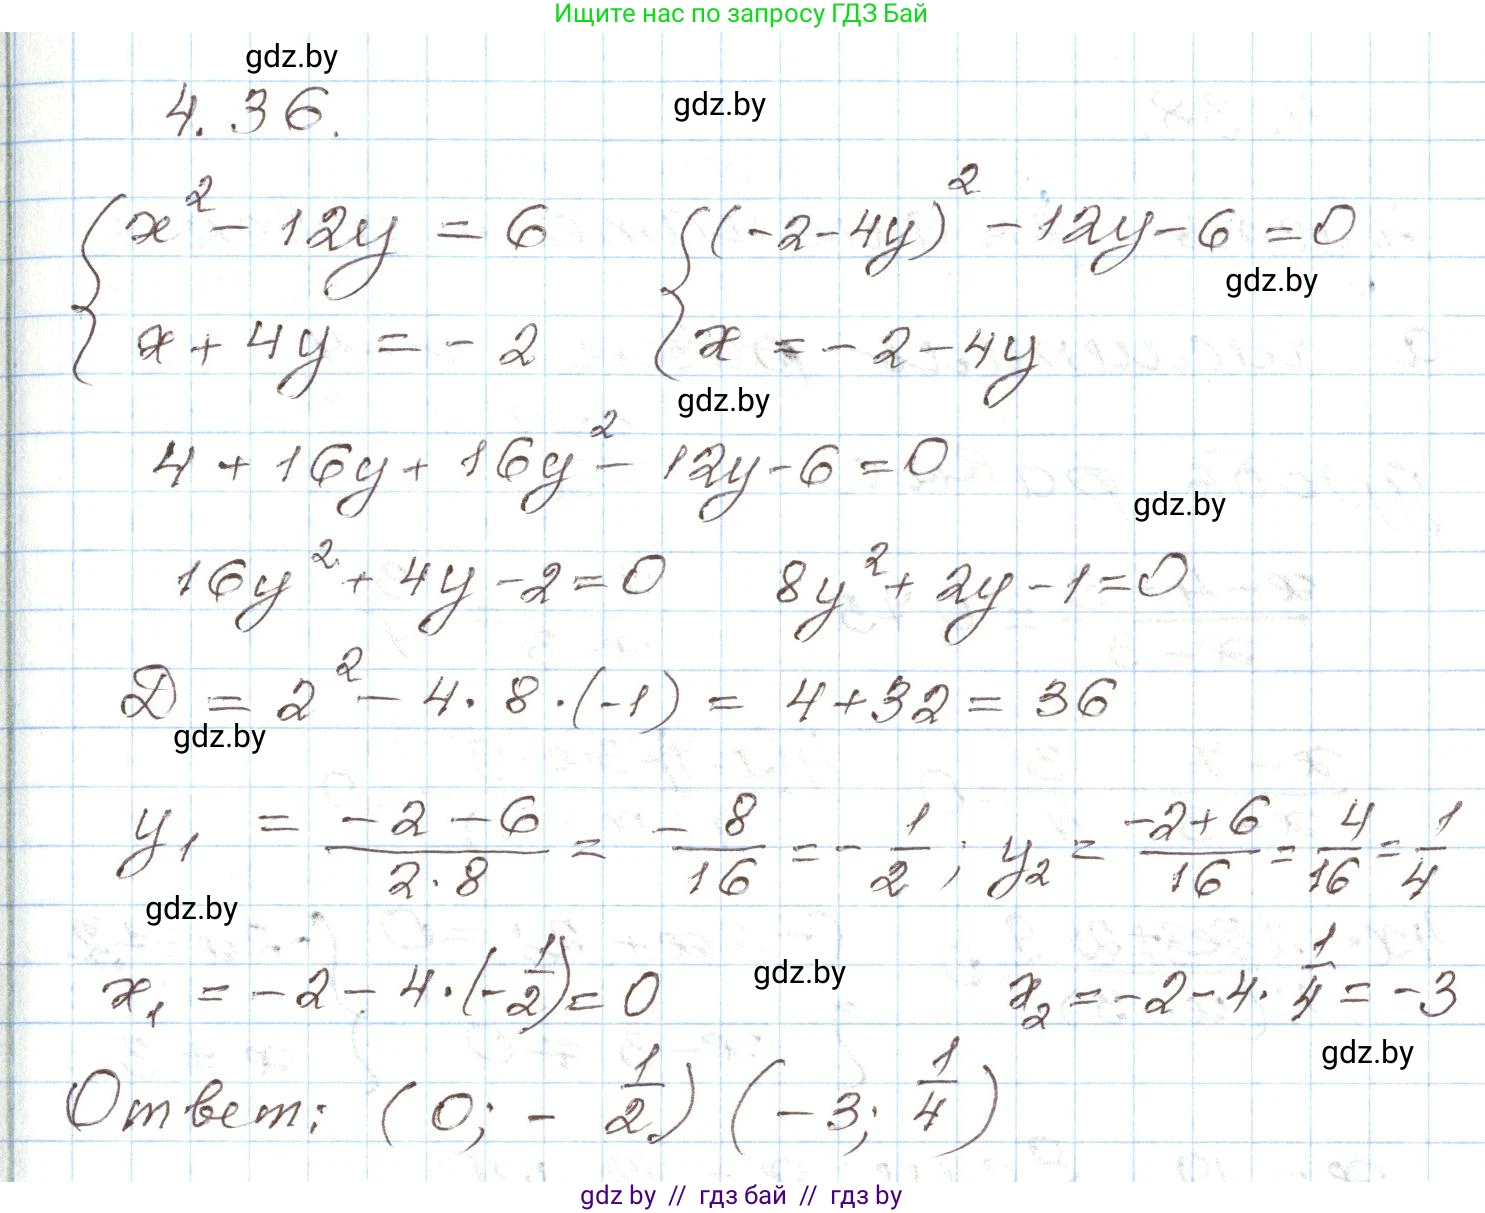 Ищите нас по запросу ГДЗ Бай
gdz.by
4.36.
gdz.by
{ x² - 12y = 6    { (-2-4y)² - 12y - 6 = 0
gdz.by
x + 4y = -2    x = -2 - 4y
gdz.by
4 + 16y + 16y² - 12y - 6 = 0
gdz.by
16y² + 4y - 2 = 0    8y² + 2y - 1 = 0
D = 2² - 4·8·(-1) = 4 + 32 = 36
gdz.by
y₁ = (-2-6)/(2·8) = -8/16 = -1/2; y₂ = (-2+6)/16 = 4/16 = 1/4
gdz.by
x₁ = -2 - 4·(-1/2) = 0    gdz.by    x₂ = -2 - 4·1/4 = -3
gdz.by
Ответ: (0; -1/2) (-3; 1/4)
gdz by // гдз бай // гдз by